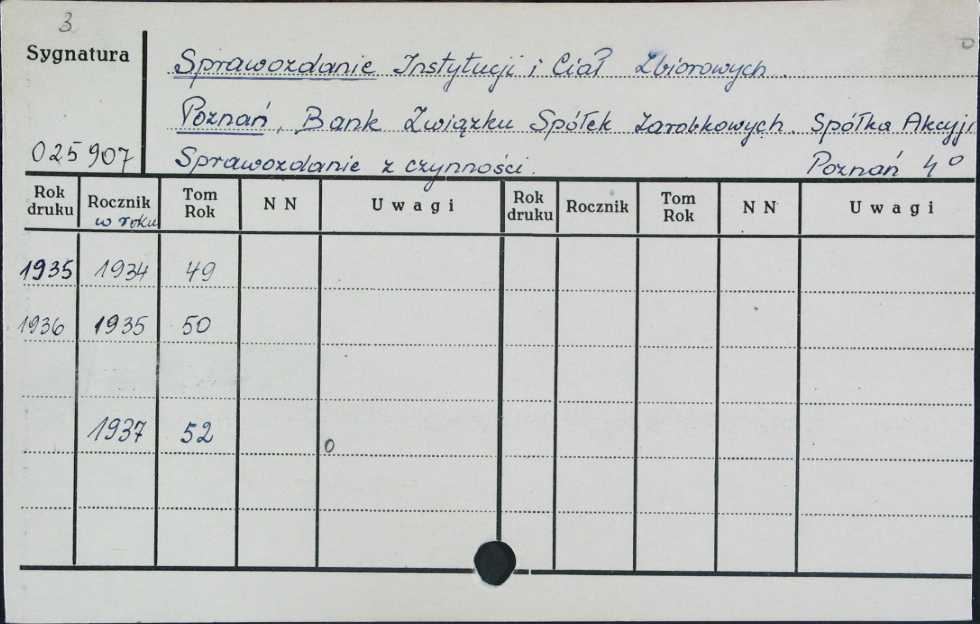 3
Sygnatura
Sprawozdanie Instytucji i Ciał Zbiorowych.
Poznań, Bank Związku Spółek Zarobkowych. Spółka Akcyj
025907 Sprawozdanie z czynności. Poznań 4°
Rok druku Rocznik w roku Tom Rok NN Uwagi Rok druku Rocznik Tom Rok NN Uwagi
1935 1934 49
1936 1935 50
1937 52 0